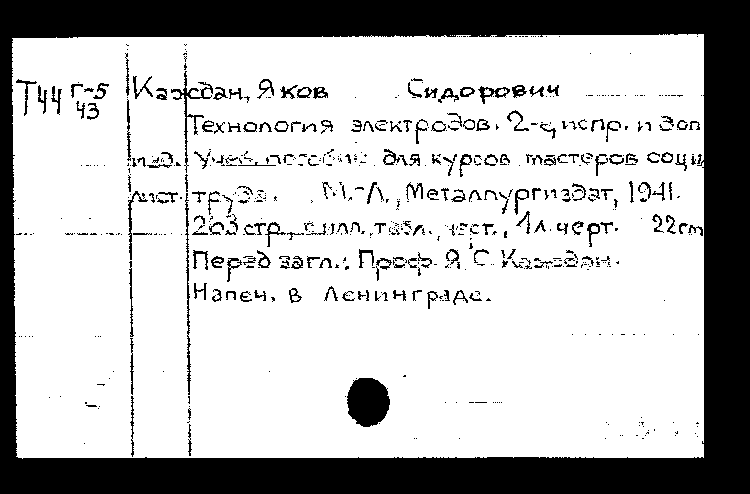 Т44 Г-5 Каждан, Яков Сидорович
43
Технология электродов. 2-е, испр. и доп
изд. Учеб. пособие для курсов мастеров соци
лист. труда. М.-Л., Металлургиздат, 1941.
203 стр., с илл., табл., черт., 1 л. черт. 22 cm
Перед загл.: Проф. Я. С. Каждан.
Напеч. в Ленинграде.